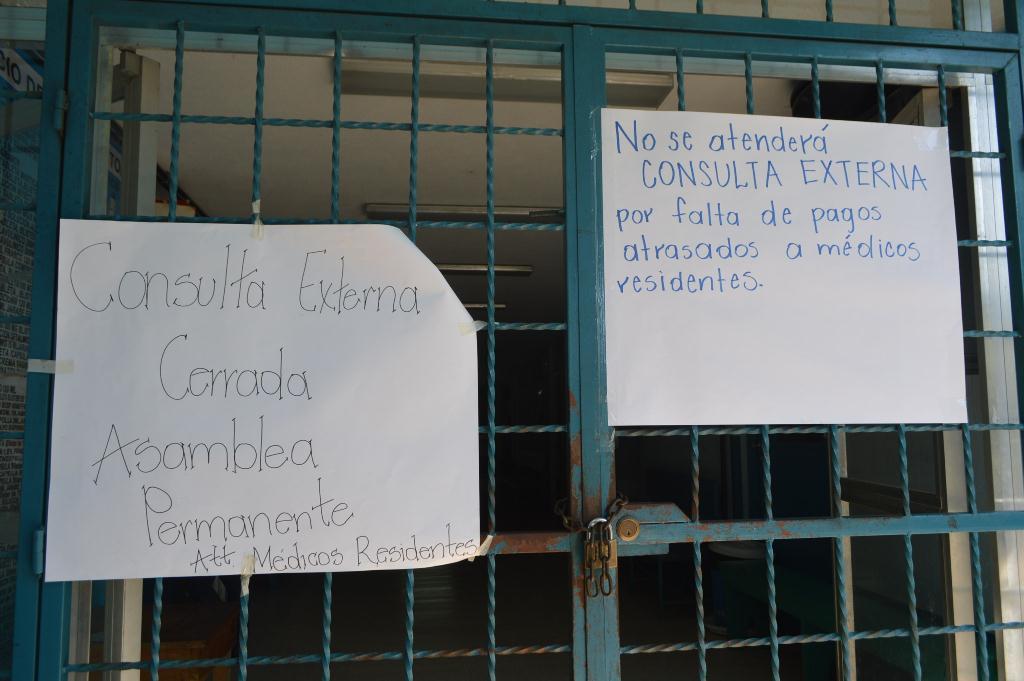 Consulta Externa
Cerrada
Asamblea
Permanente
Att. Médicos Residentes
No se atenderá
CONSULTA EXTERNA
por falta de pagos
atrasados a médicos
residentes.